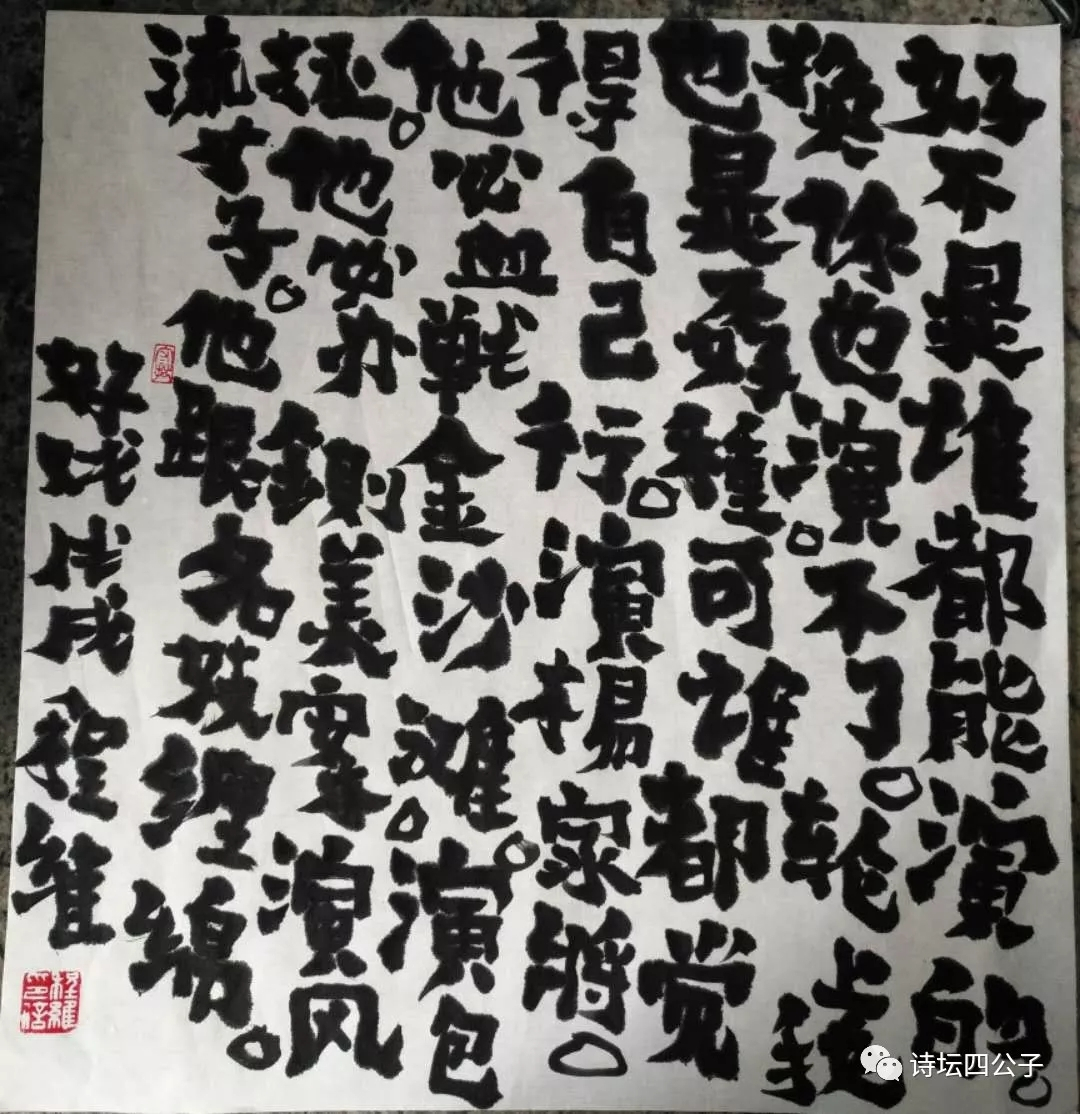 好不是谁都能演的。
换你也演。不了。轮
也是孬種可谁都觉
得自己行。演杨家將。
他必血战金沙滩。演包
拯。他必办鍘美案演风
流才子。他跟名妓缠绵。
好戏戊戌程维
程維印信
诗坛四公子